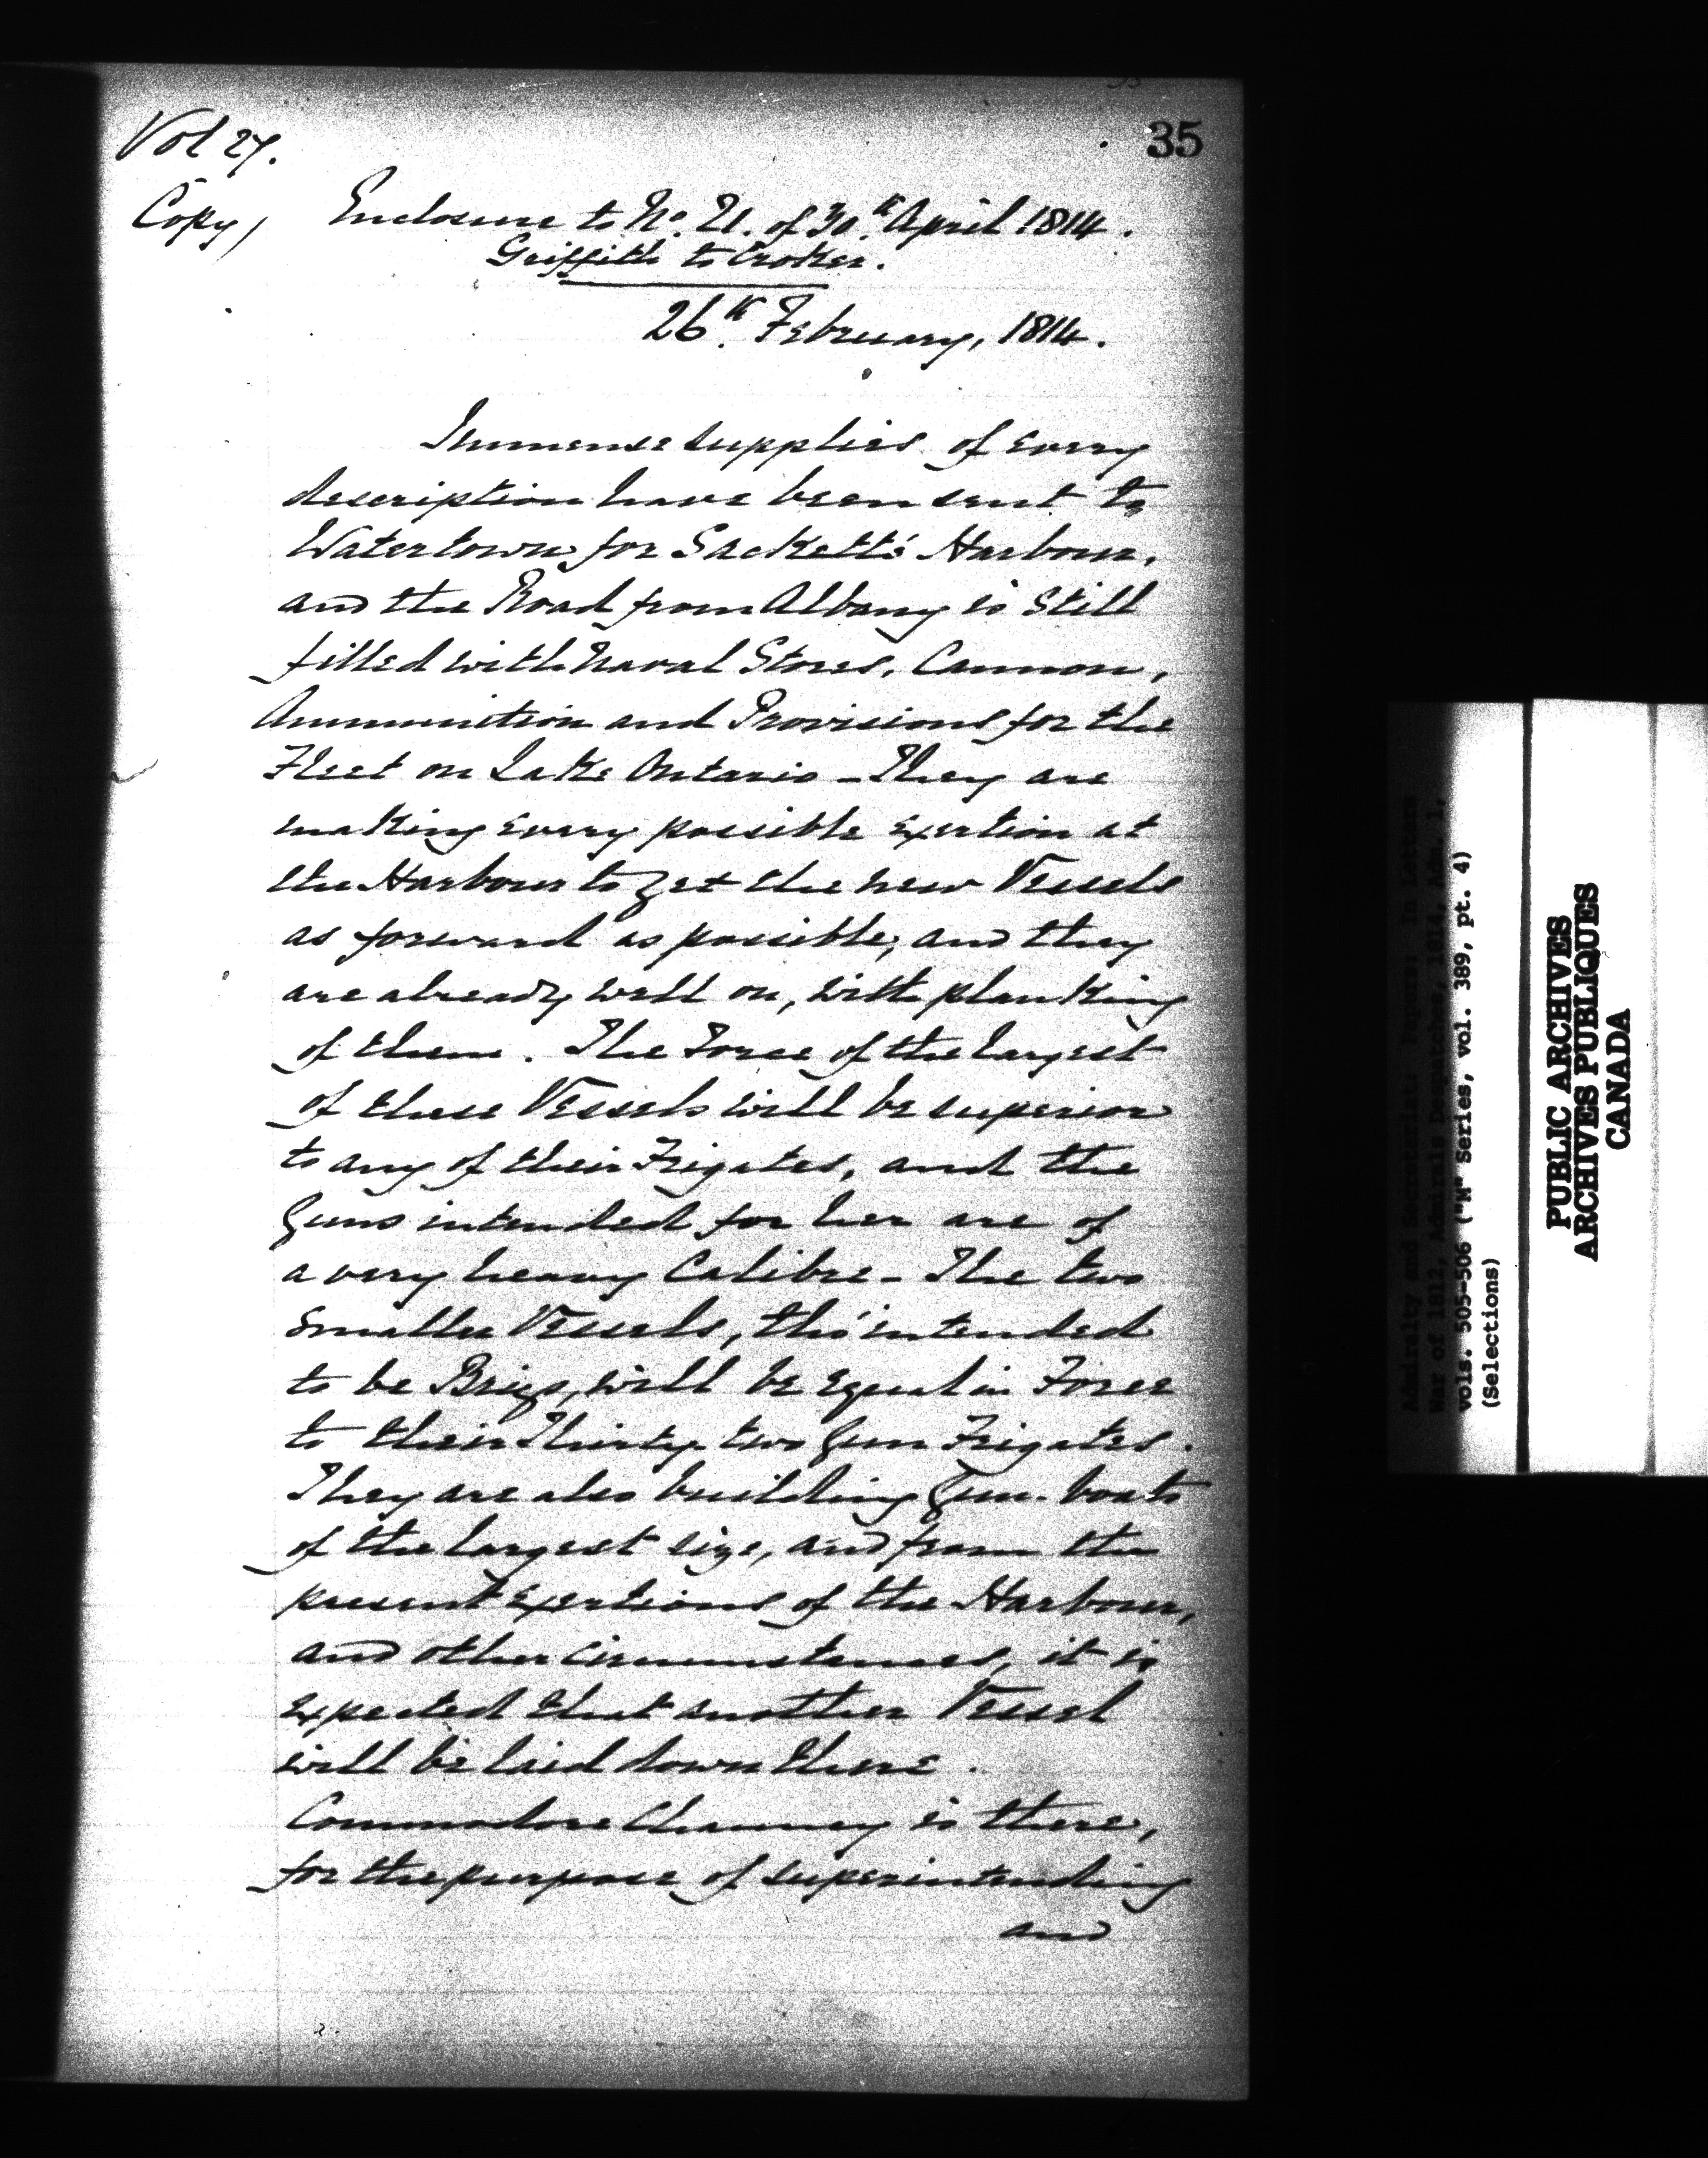 35
Vol 27.
Copy / Enclosure to No. 21. of 30th April 1814.
Griffith to Croker.
26th February, 1814.
Immense supplies of every
description have been sent to
Watertown for Sackett's Harbour,
and the Road from Albany is still
filled with Naval Stores, Cannon,
Ammunition and Provisions for the
Fleet on Lake Ontario – They are
making every possible exertion at
the Harbour to get the new Vessels
as forward as possible, and they
are already well on, with planking
of them. The Force of the largest
of these Vessels will be superior
to any of their Frigates, and the
Guns intended for her are of
a very heavy Calibre – The two
smaller Vessels, tho' intended
to be Brigs, will be equal in Force
to their Thirty two Gun Frigates.
They are also building Gun-boats
of the largest size, and from the
present exertions of the Harbour,
and other circumstances, it is
expected that another Vessel
will be laid down there.
Commodore Chauncey is there,
for the purpose of superintending
and
Admiralty and Secretariat: Papers: In Letters
War of 1812, Admirals Despatches, 1814, Adm. 1,
vols. 505-506 ("M" Series, vol. 389, pt. 4)
(Selections)
PUBLIC ARCHIVES
ARCHIVES PUBLIQUES
CANADA